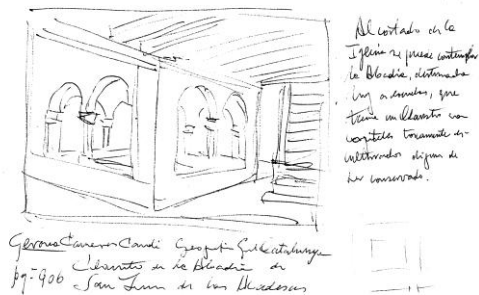 Al costado de la
Iglesia se puede contemplar
la Abadia, destinada
hoy a escuelas, que
tiene un Claustro con
capiteles toscamente es-
culturados dignos de
ser conservado.
Gerona Carreras Candi Geografia Gral Catalunya
pg-906 Claustro de la Abadia de
San Juan de las Abadesas